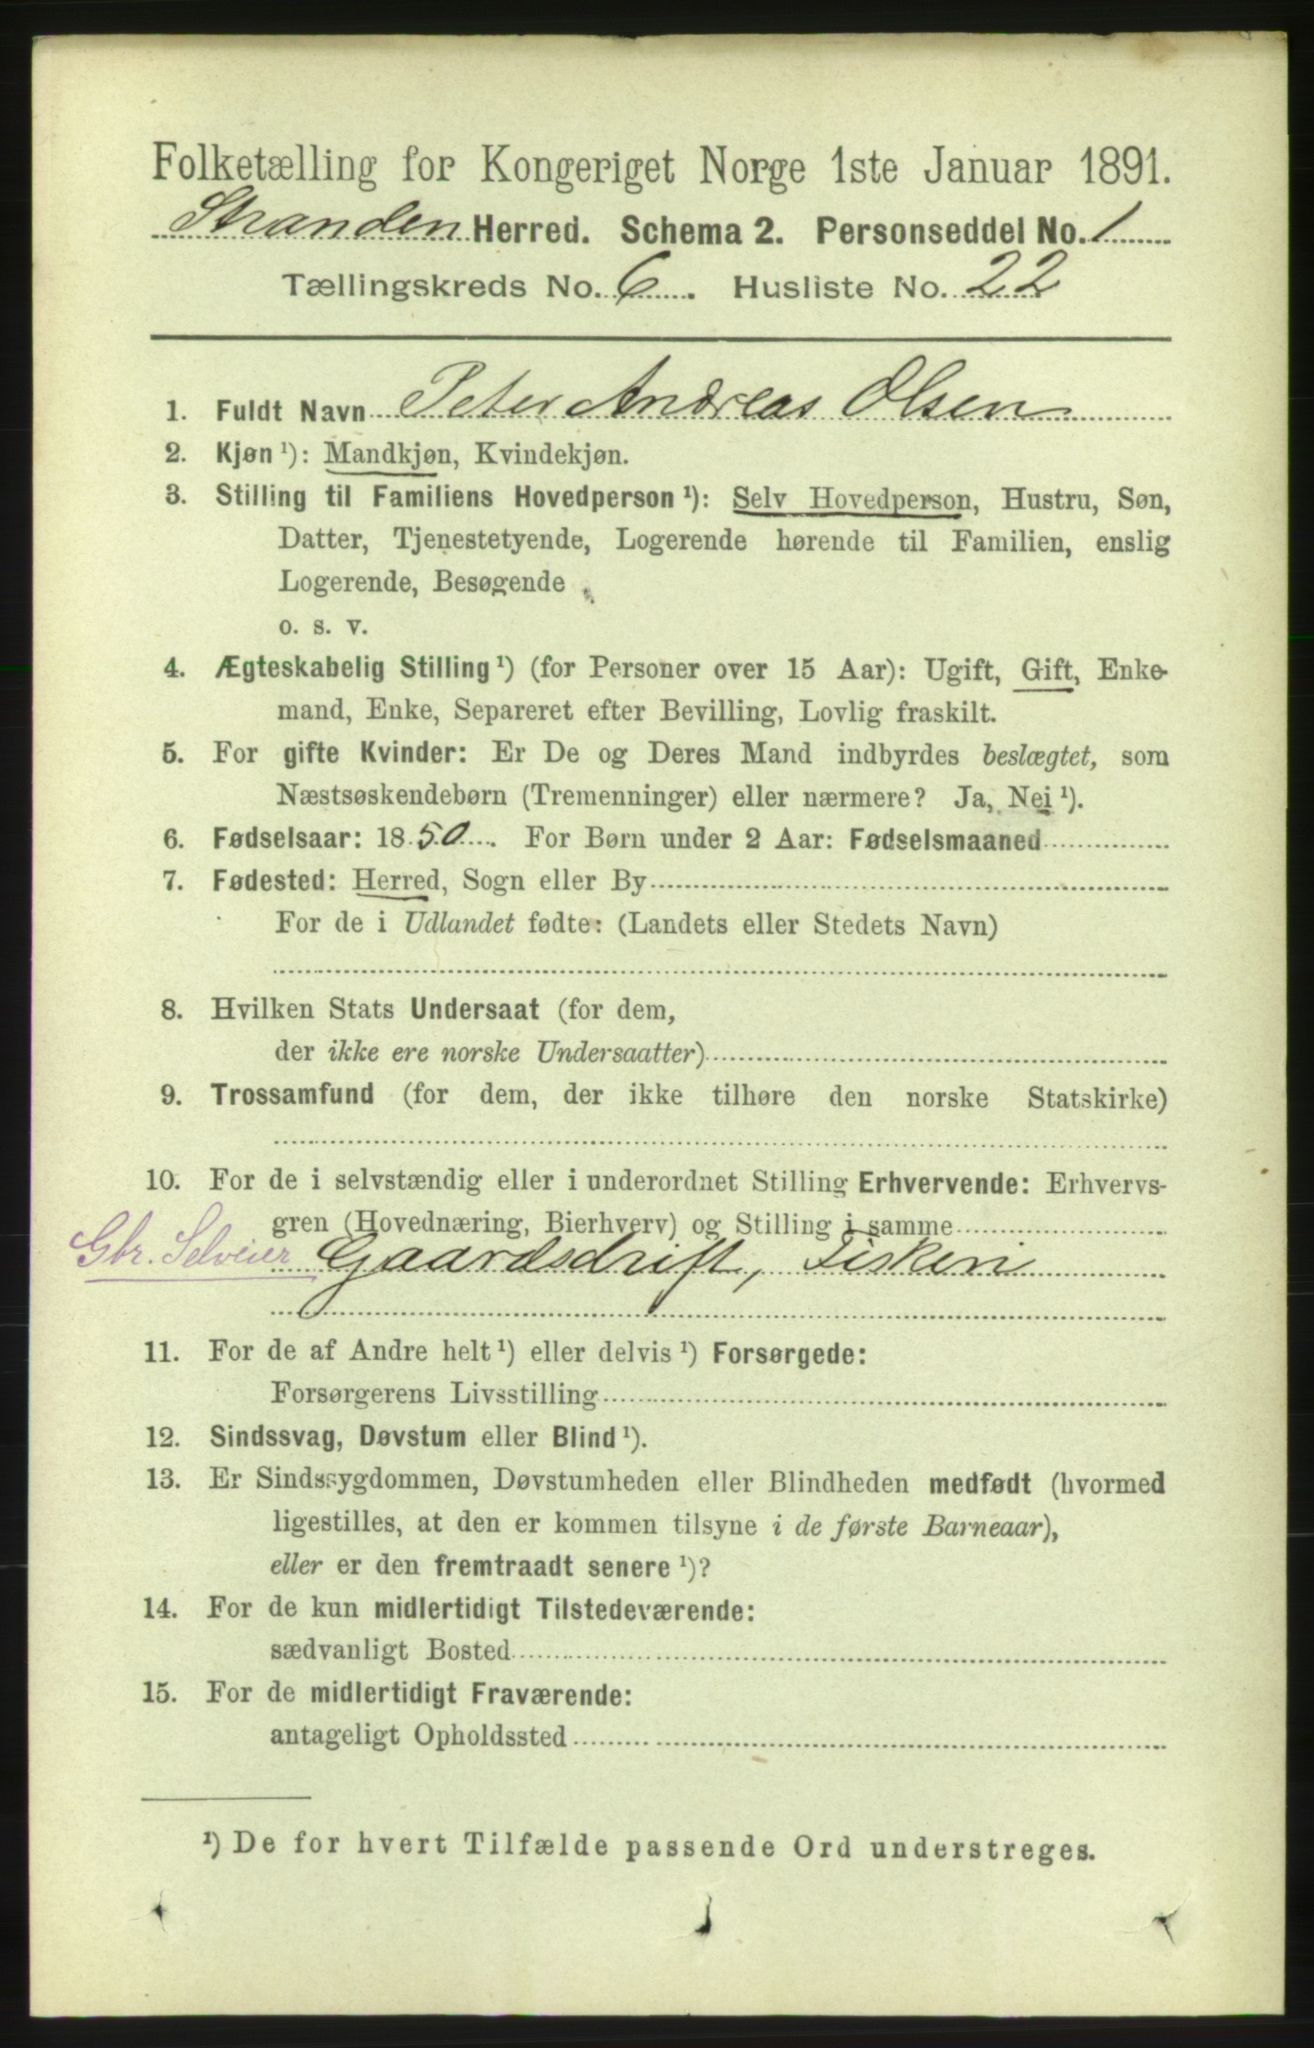 Folketælling for Kongeriget Norge 1ste Januar 1891.
Stranden Herred. Schema 2. Personseddel No. 1
Tællingskreds No. 6. Husliste No. 22
1. Fuldt Navn Peter Andreas Olsen
2. Kjøn ¹): Mandkjøn, Kvindekjøn.
3. Stilling til Familiens Hovedperson ¹): Selv Hovedperson, Hustru, Søn,
Datter, Tjenestetyende, Logerende hørende til Familien, enslig
Logerende, Besøgende
o. s. v.
4. Ægteskabelig Stilling ¹) (for Personer over 15 Aar): Ugift, Gift, Enke-
mand, Enke, Separeret efter Bevilling, Lovlig fraskilt.
5. For gifte Kvinder: Er De og Deres Mand indbyrdes beslægtet, som
Næstsøskendebørn (Tremenninger) eller nærmere? Ja, Nei ¹).
6. Fødselsaar: 1850. For Børn under 2 Aar: Fødselsmaaned
7. Fødested: Herred, Sogn eller By
For de i Udlandet fødte: (Landets eller Stedets Navn)
8. Hvilken Stats Undersaat (for dem,
der ikke ere norske Undersaatter)
9. Trossamfund (for dem, der ikke tilhøre den norske Statskirke)
10. For de i selvstændig eller i underordnet Stilling Erhvervende: Erhvervs-
gren (Hovednæring, Bierhverv) og Stilling i samme
Gbr. Selveier Gaardsdrift, Fiskeri
11. For de af Andre helt ¹) eller delvis ¹) Forsørgede:
Forsørgerens Livsstilling
12. Sindssvag, Døvstum eller Blind ¹).
13. Er Sindssygdommen, Døvstumheden eller Blindheden medfødt (hvormed
ligestilles, at den er kommen tilsyne i de første Barneaar),
eller er den fremtraadt senere ¹)?
14. For de kun midlertidigt Tilstedeværende:
sædvanligt Bosted
15. For de midlertidigt Fraværende:
antageligt Opholdssted
¹) De for hvert Tilfælde passende Ord understreges.